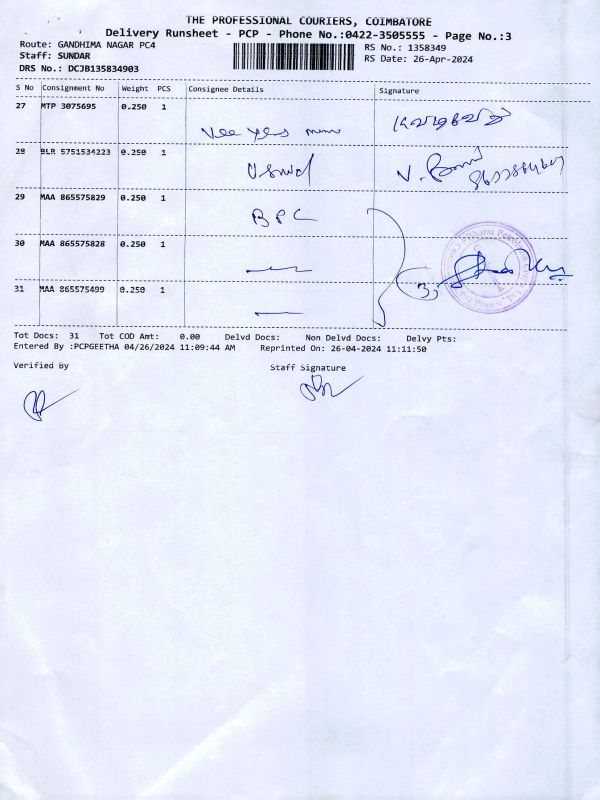 THE PROFESSIONAL COURIERS, COIMBATORE
Delivery Runsheet - PCP - Phone No.:0422-3505555 - Page No.:3
Route: GANDHIMA NAGAR PC4
Staff: SUNDAR
DRS No.: DCJB135834903
RS No.: 1358349
RS Date: 26-Apr-2024
S No Consignment No Weight PCS Consignee Details Signature
27 MTP 3075695 0.250 1
28 BLR 5751534223 0.250 1
29 MAA 865575829 0.250 1 BPC
30 MAA 865575828 0.250 1
31 MAA 865575499 0.250 1
Tot Docs: 31 Tot COD Amt: 0.00 Delvd Docs: Non Delvd Docs: Delvy Pts:
Entered By :PCPGEETHA 04/26/2024 11:09:44 AM Reprinted On: 26-04-2024 11:11:50
Verified By Staff Signature